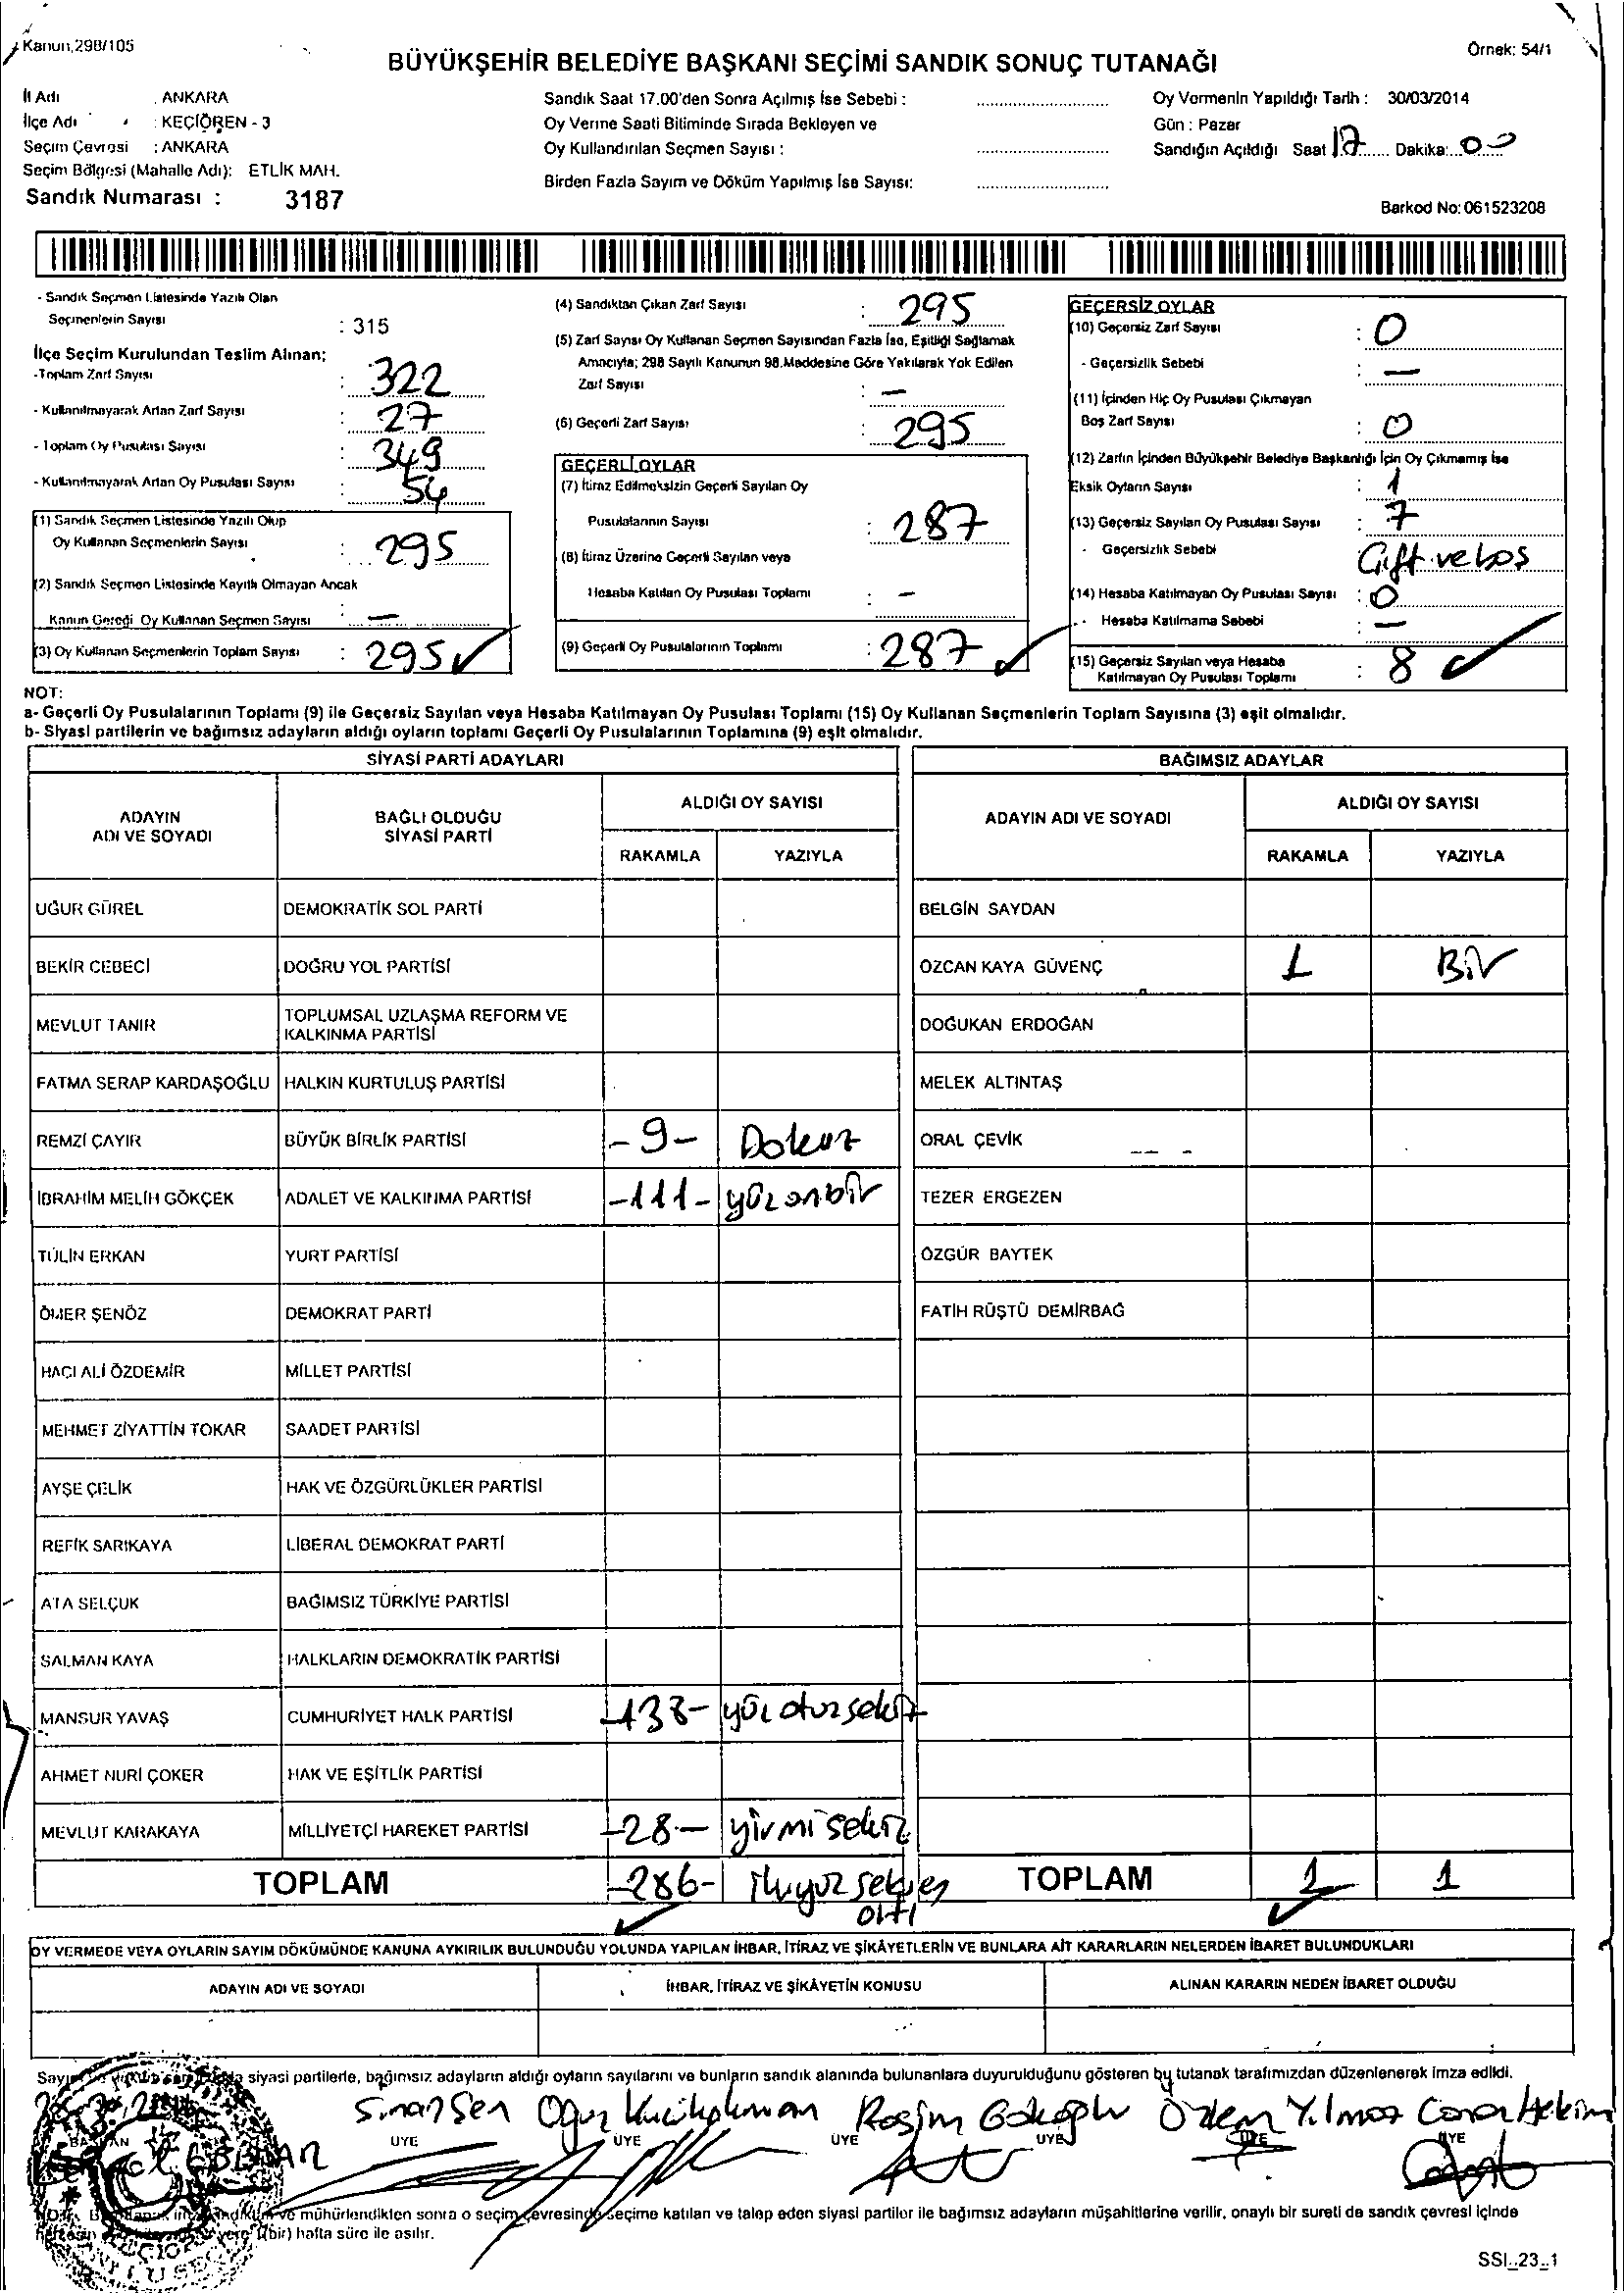 Kanun,298/105
Örnek: 54/1
BÜYÜKŞEHİR BELEDİYE BAŞKANI SEÇİMİ SANDIK SONUÇ TUTANAĞI
İl Adı : ANKARA
İlçe Adı : KEÇİÖREN - 3
Seçim Çevresi : ANKARA
Seçim Bölgesi (Mahalle Adı): ETLİK MAH.
Sandık Numarası : 3187
Sandık Saat 17.00'den Sonra Açılmış İse Sebebi :
Oy Verme Saati Bitiminde Sırada Bekleyen ve
Oy Kullandırılan Seçmen Sayısı :
Birden Fazla Sayım ve Döküm Yapılmış İse Sayısı:
Oy Vermenin Yapıldığı Tarih : 30/03/2014
Gün : Pazar
Sandığın Açıldığı Saat 17 Dakika: 00
Barkod No: 061523208
- Sandık Seçmen Listesinde Yazılı Olan
Seçmenlerin Sayısı : 315
İlçe Seçim Kurulundan Teslim Alınan;
-Toplam Zarf Sayısı : 322
- Kullanılmayarak Artan Zarf Sayısı : 27
- Toplam Oy Pusulası Sayısı : 349
- Kullanılmayarak Artan Oy Pusulası Sayısı : 54
(1) Sandık Seçmen Listesinde Yazılı Olup
Oy Kullanan Seçmenlerin Sayısı : 295
(2) Sandık Seçmen Listesinde Kayıtlı Olmayan Ancak
Kanun Gereği Oy Kullanan Seçmen Sayısı : —
(3) Oy Kullanan Seçmenlerin Toplam Sayısı : 295 ✓
(4) Sandıktan Çıkan Zarf Sayısı : 295
(5) Zarf Sayısı Oy Kullanan Seçmen Sayısından Fazla İse, Eşitliği Sağlamak
Amacıyla; 298 Sayılı Kanunun 98.Maddesine Göre Yakılarak Yok Edilen
Zarf Sayısı : —
(6) Geçerli Zarf Sayısı : 295
GEÇERLİ OYLAR
(7) İtiraz Edilmeksizin Geçerli Sayılan Oy
Pusulalarının Sayısı : 287
(8) İtiraz Üzerine Geçerli Sayılan veya
Hesaba Katılan Oy Pusulası Toplamı : —
(9) Geçerli Oy Pusulalarının Toplamı : 287 ✓
GEÇERSİZ OYLAR
(10) Geçersiz Zarf Sayısı : 0
- Geçersizlik Sebebi : —
(11) İçinden Hiç Oy Pusulası Çıkmayan
Boş Zarf Sayısı : 0
(12) Zarfın İçinden Büyükşehir Belediye Başkanlığı İçin Oy Çıkmamış İse
Eksik Oyların Sayısı : 1
(13) Geçersiz Sayılan Oy Pusulası Sayısı : 7
- Geçersizlik Sebebi Çift ve boş
(14) Hesaba Katılmayan Oy Pusulası Sayısı : 0
- Hesaba Katılmama Sebebi : —
(15) Geçersiz Sayılan veya Hesaba
Katılmayan Oy Pusulası Toplamı : 8 ✓
NOT:
a- Geçerli Oy Pusulalarının Toplamı (9) ile Geçersiz Sayılan veya Hesaba Katılmayan Oy Pusulası Toplamı (15) Oy Kullanan Seçmenlerin Toplam Sayısına (3) eşit olmalıdır.
b- Siyasi partilerin ve bağımsız adayların aldığı oyların toplamı Geçerli Oy Pusulalarının Toplamına (9) eşit olmalıdır.
SİYASİ PARTİ ADAYLARI
ADAYIN
ADI VE SOYADI
BAĞLI OLDUĞU
SİYASİ PARTİ
ALDIĞI OY SAYISI
RAKAMLA YAZIYLA
UĞUR GÜREL DEMOKRATİK SOL PARTİ
BEKİR CEBECİ DOĞRU YOL PARTİSİ
MEVLUT TANIR TOPLUMSAL UZLAŞMA REFORM VE
KALKINMA PARTİSİ
FATMA SERAP KARDAŞOĞLU HALKIN KURTULUŞ PARTİSİ
REMZİ ÇAYIR BÜYÜK BİRLİK PARTİSİ -9- Dokuz
İBRAHİM MELİH GÖKÇEK ADALET VE KALKINMA PARTİSİ -111- yüzonbir
TÜLİN ERKAN YURT PARTİSİ
ÖMER ŞENÖZ DEMOKRAT PARTİ
HACI ALİ ÖZDEMİR MİLLET PARTİSİ
MEHMET ZİYATTİN TOKAR SAADET PARTİSİ
AYŞE ÇELİK HAK VE ÖZGÜRLÜKLER PARTİSİ
REFİK SARIKAYA LİBERAL DEMOKRAT PARTİ
ATA SELÇUK BAĞIMSIZ TÜRKİYE PARTİSİ
SALMAN KAYA HALKLARIN DEMOKRATİK PARTİSİ
MANSUR YAVAŞ CUMHURİYET HALK PARTİSİ -138- yüz otuzsekiz
AHMET NURİ ÇOKER HAK VE EŞİTLİK PARTİSİ
MEVLUT KARAKAYA MİLLİYETÇİ HAREKET PARTİSİ -28- yirmisekiz
TOPLAM -286- ikiyüz seksen
altı
BAĞIMSIZ ADAYLAR
ADAYIN ADI VE SOYADI
ALDIĞI OY SAYISI
RAKAMLA YAZIYLA
BELGİN SAYDAN
ÖZCAN KAYA GÜVENÇ 1 Bir
DOĞUKAN ERDOĞAN
MELEK ALTINTAŞ
ORAL ÇEVİK
TEZER ERGEZEN
ÖZGÜR BAYTEK
FATİH RÜŞTÜ DEMİRBAĞ
TOPLAM 1 1
OY VERMEDE VEYA OYLARIN SAYIM DÖKÜMÜNDE KANUNA AYKIRILIK BULUNDUĞU YOLUNDA YAPILAN İHBAR, İTİRAZ VE ŞİKÂYETLERİN VE BUNLARA AİT KARARLARIN NELERDEN İBARET BULUNDUKLARI
ADAYIN ADI VE SOYADI
İHBAR, İTİRAZ VE ŞİKÂYETİN KONUSU
ALINAN KARARIN NEDEN İBARET OLDUĞU
siyasi partilerle, bağımsız adayların aldığı oyların sayılarını ve bunların sandık alanında bulunanlara duyurulduğunu gösteren bu tutanak tarafımızdan düzenlenerek imza edildi.
Sinan Şen Oğuz Küçükduman Rasim Gökoğlu Özlem Yılmaz Caner Hekim
BAŞKAN ÜYE ÜYE ÜYE ÜYE ÜYE ÜYE
ve mühürlendikten sonra o seçim çevresinde seçime katılan ve talep eden siyasi partiler ile bağımsız adayların müşahitlerine verilir, onaylı bir sureti de sandık çevresi içinde
(bir) hafta süre ile asılır.
SSI_23_1